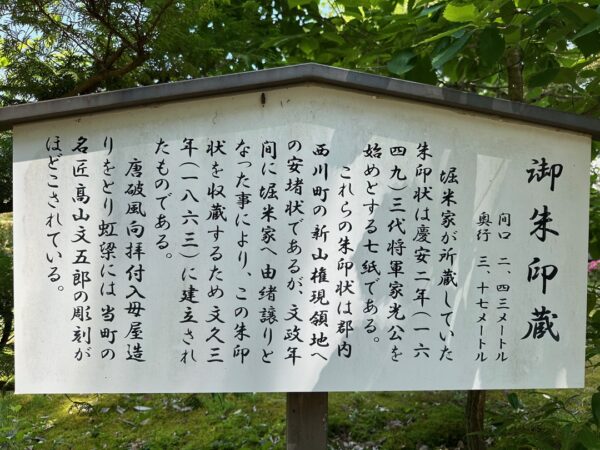 御朱印蔵
間口 二、四三メートル
奥行 三、十七メートル
堀米家が所蔵していた
朱印状は慶安二年(一六
四九)三代将軍家光公を
始めとする七紙である。
これらの朱印状は郡内
西川町の新山権現領地へ
の安堵状であるが、文政年
間に堀米家へ由緒譲りと
なった事により、この朱印
状を収蔵するため文久三
年(一八六三)に建立され
たものである。
唐破風向拝付入母屋造
りをとり虹梁には当町の
名匠髙山文五郎の彫刻が
ほどこされている。